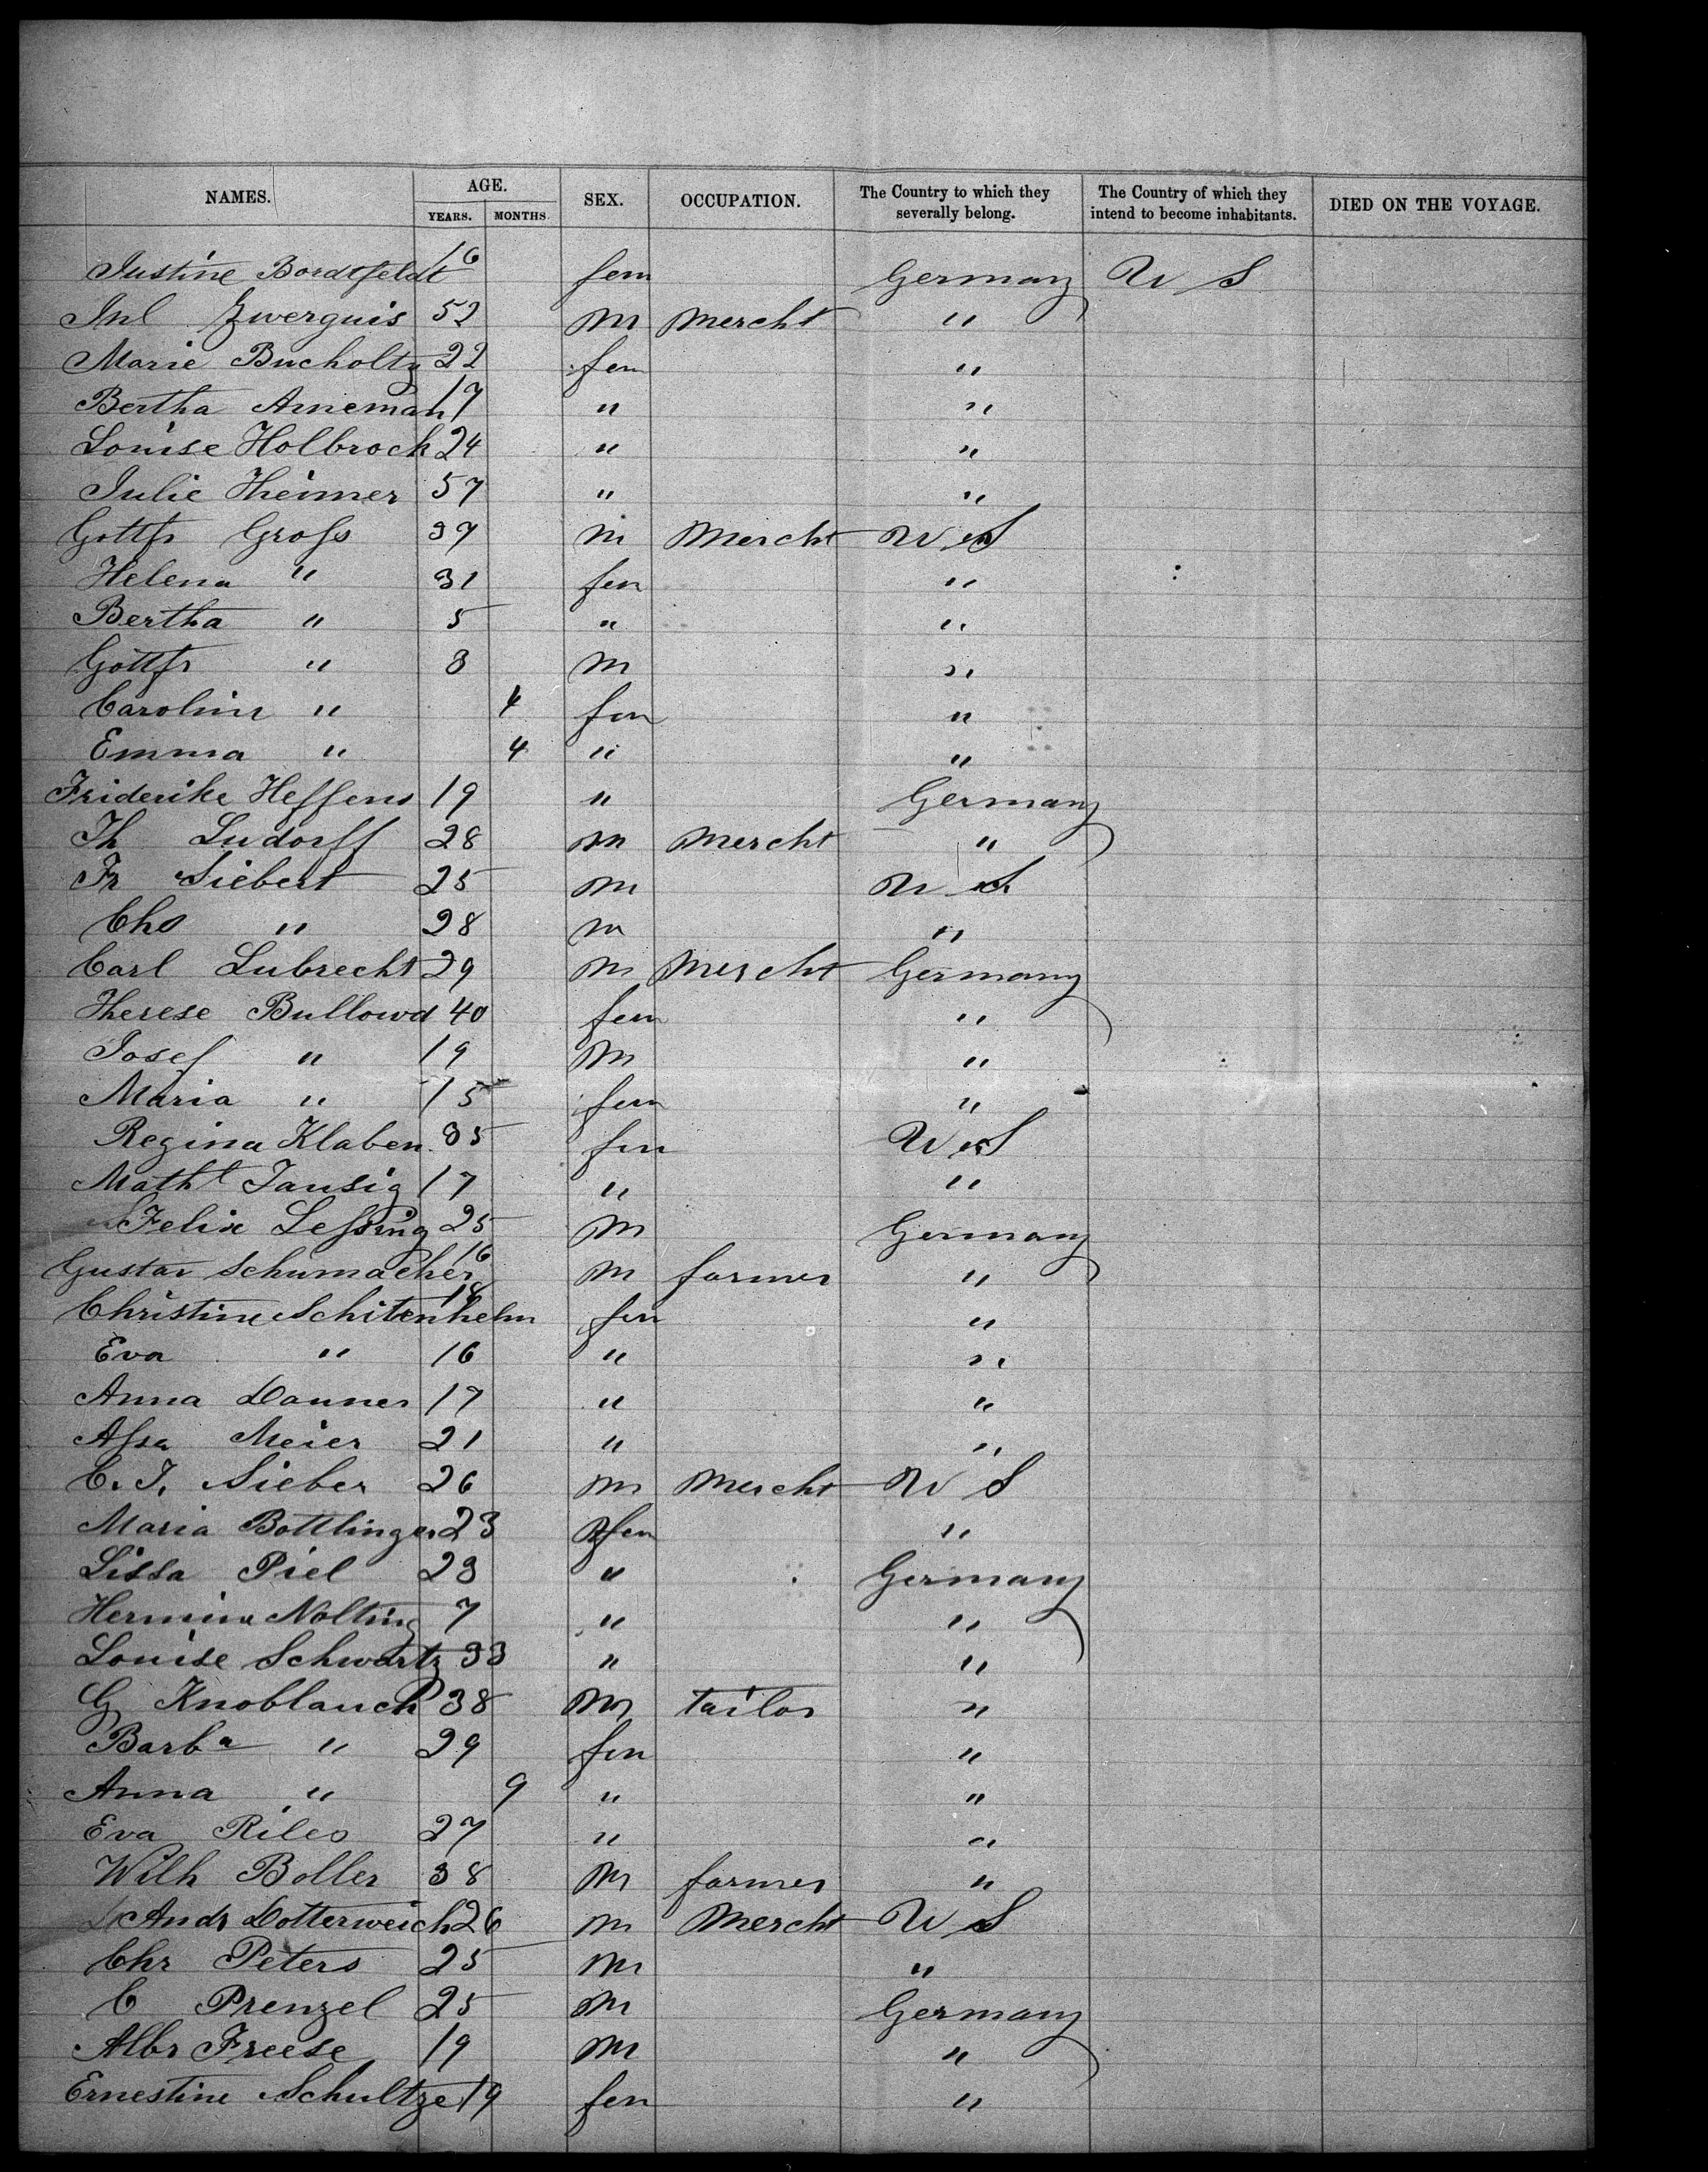 NAMES. AGE. SEX. OCCUPATION. The Country to which they severally belong. The Country of which they intend to become inhabitants. DIED ON THE VOYAGE.
YEARS. MONTHS.
Justine Bordtfeldt 16 fem Germany U S
Jul Zwerguis 52 m Mercht "
Marie Bucholtz 22 fem "
Bertha Arneman 17 " "
Louise Holbrock 24 " "
Julie Theimer 57 " "
Gottfr Groſs 37 m Mercht U S
Helena " 31 fem "
Bertha " 5 " "
Gottfr " 3 m "
Caroline " 4 fem "
Emma " 4 " "
Friderike Heffens 19 " Germany
Th Ludorff 28 m Mercht "
Fr Siebert 25 m U S
Chs " 28 m "
Carl Lubrecht 29 m Mercht Germany
Therese Bullowa 40 fem "
Josef " 19 m "
Maria " 15 fem "
Regina Klaben 35 fem U S
Math Tausig 17 " "
Felix Leſsing 25 m Germany
Gustav Schumacher 16 m farmer "
Christine Schitenhelm 18 fem "
Eva " 16 " "
Anna Danner 17 " "
Aſsa Meier 21 " "
C. J. Sieber 26 m Mercht U S
Maria Bottlinger 23 fem "
Lissa Piel 23 " Germany
Hermine Nolting 7 " "
Louise Schwartz 33 " "
G Knoblauch 38 m tailor "
Barba " 29 fem "
Anna " 9 " "
Eva Riles 27 " "
Wilh Boller 38 m farmer "
Andr Dotterweich 26 m Mercht U S
Chr Peters 25 m "
C Prenzel 25 m Germany
Albr Freese 19 m "
Ernestine Schultze 19 fem "